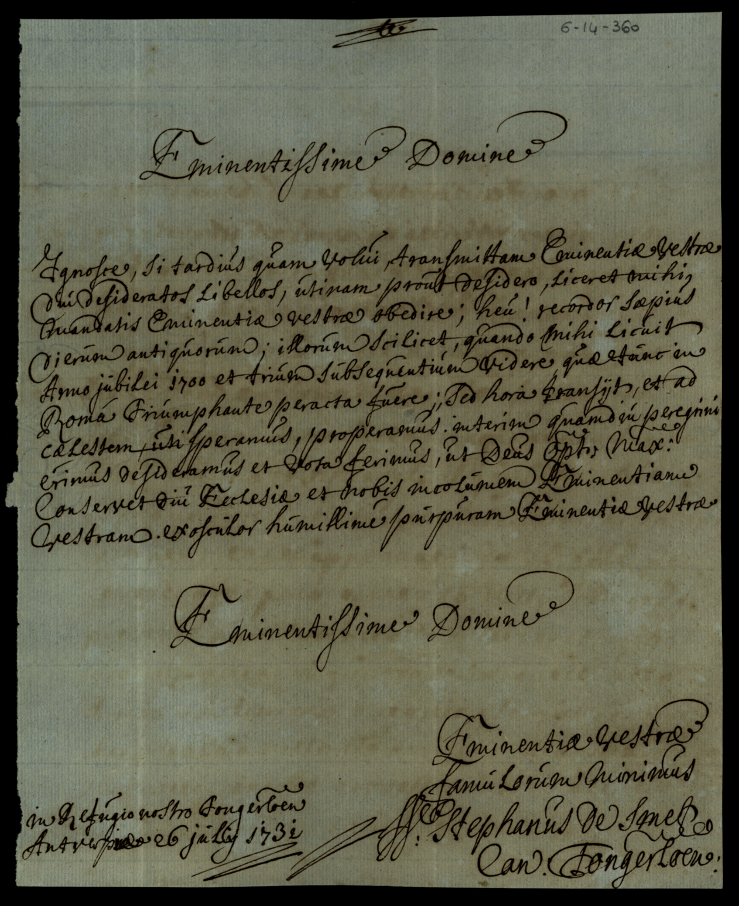 6-14-360
Eminentissime Domine
Ignosce, si tardius quam volui, transmittam Eminentiæ vestræ
diu desideratos libellos, utinam prout desidero, liceret mihi,
mandatis Eminentiæ vestræ obedire; heu! recordor sæpius
dierum antiquorum; illorum scilicet, quando mihi licuit
Anno jubilei 1700 et trium subsequentium videre quæ tunc in
Româ Triumphante peracta fuere; sed hora transijt, et ad
cælestem, uti speramus, properamus. interim quamdiu peregrini
erimus desideramus et vota ferimus, ut Deus Opt: Max:
Conservet diu Ecclesiæ et nobis incolumem Eminentiam
vestram. exosculor humillime purpuram Eminentiæ vestræ
Eminentissime Domine
Eminentiæ vestræ
famulorum minimus
Stephanus de Smet
Can. Tongerloen:
in Refugio nostro Tongerloen
Antverpiæ 26 julij 1731